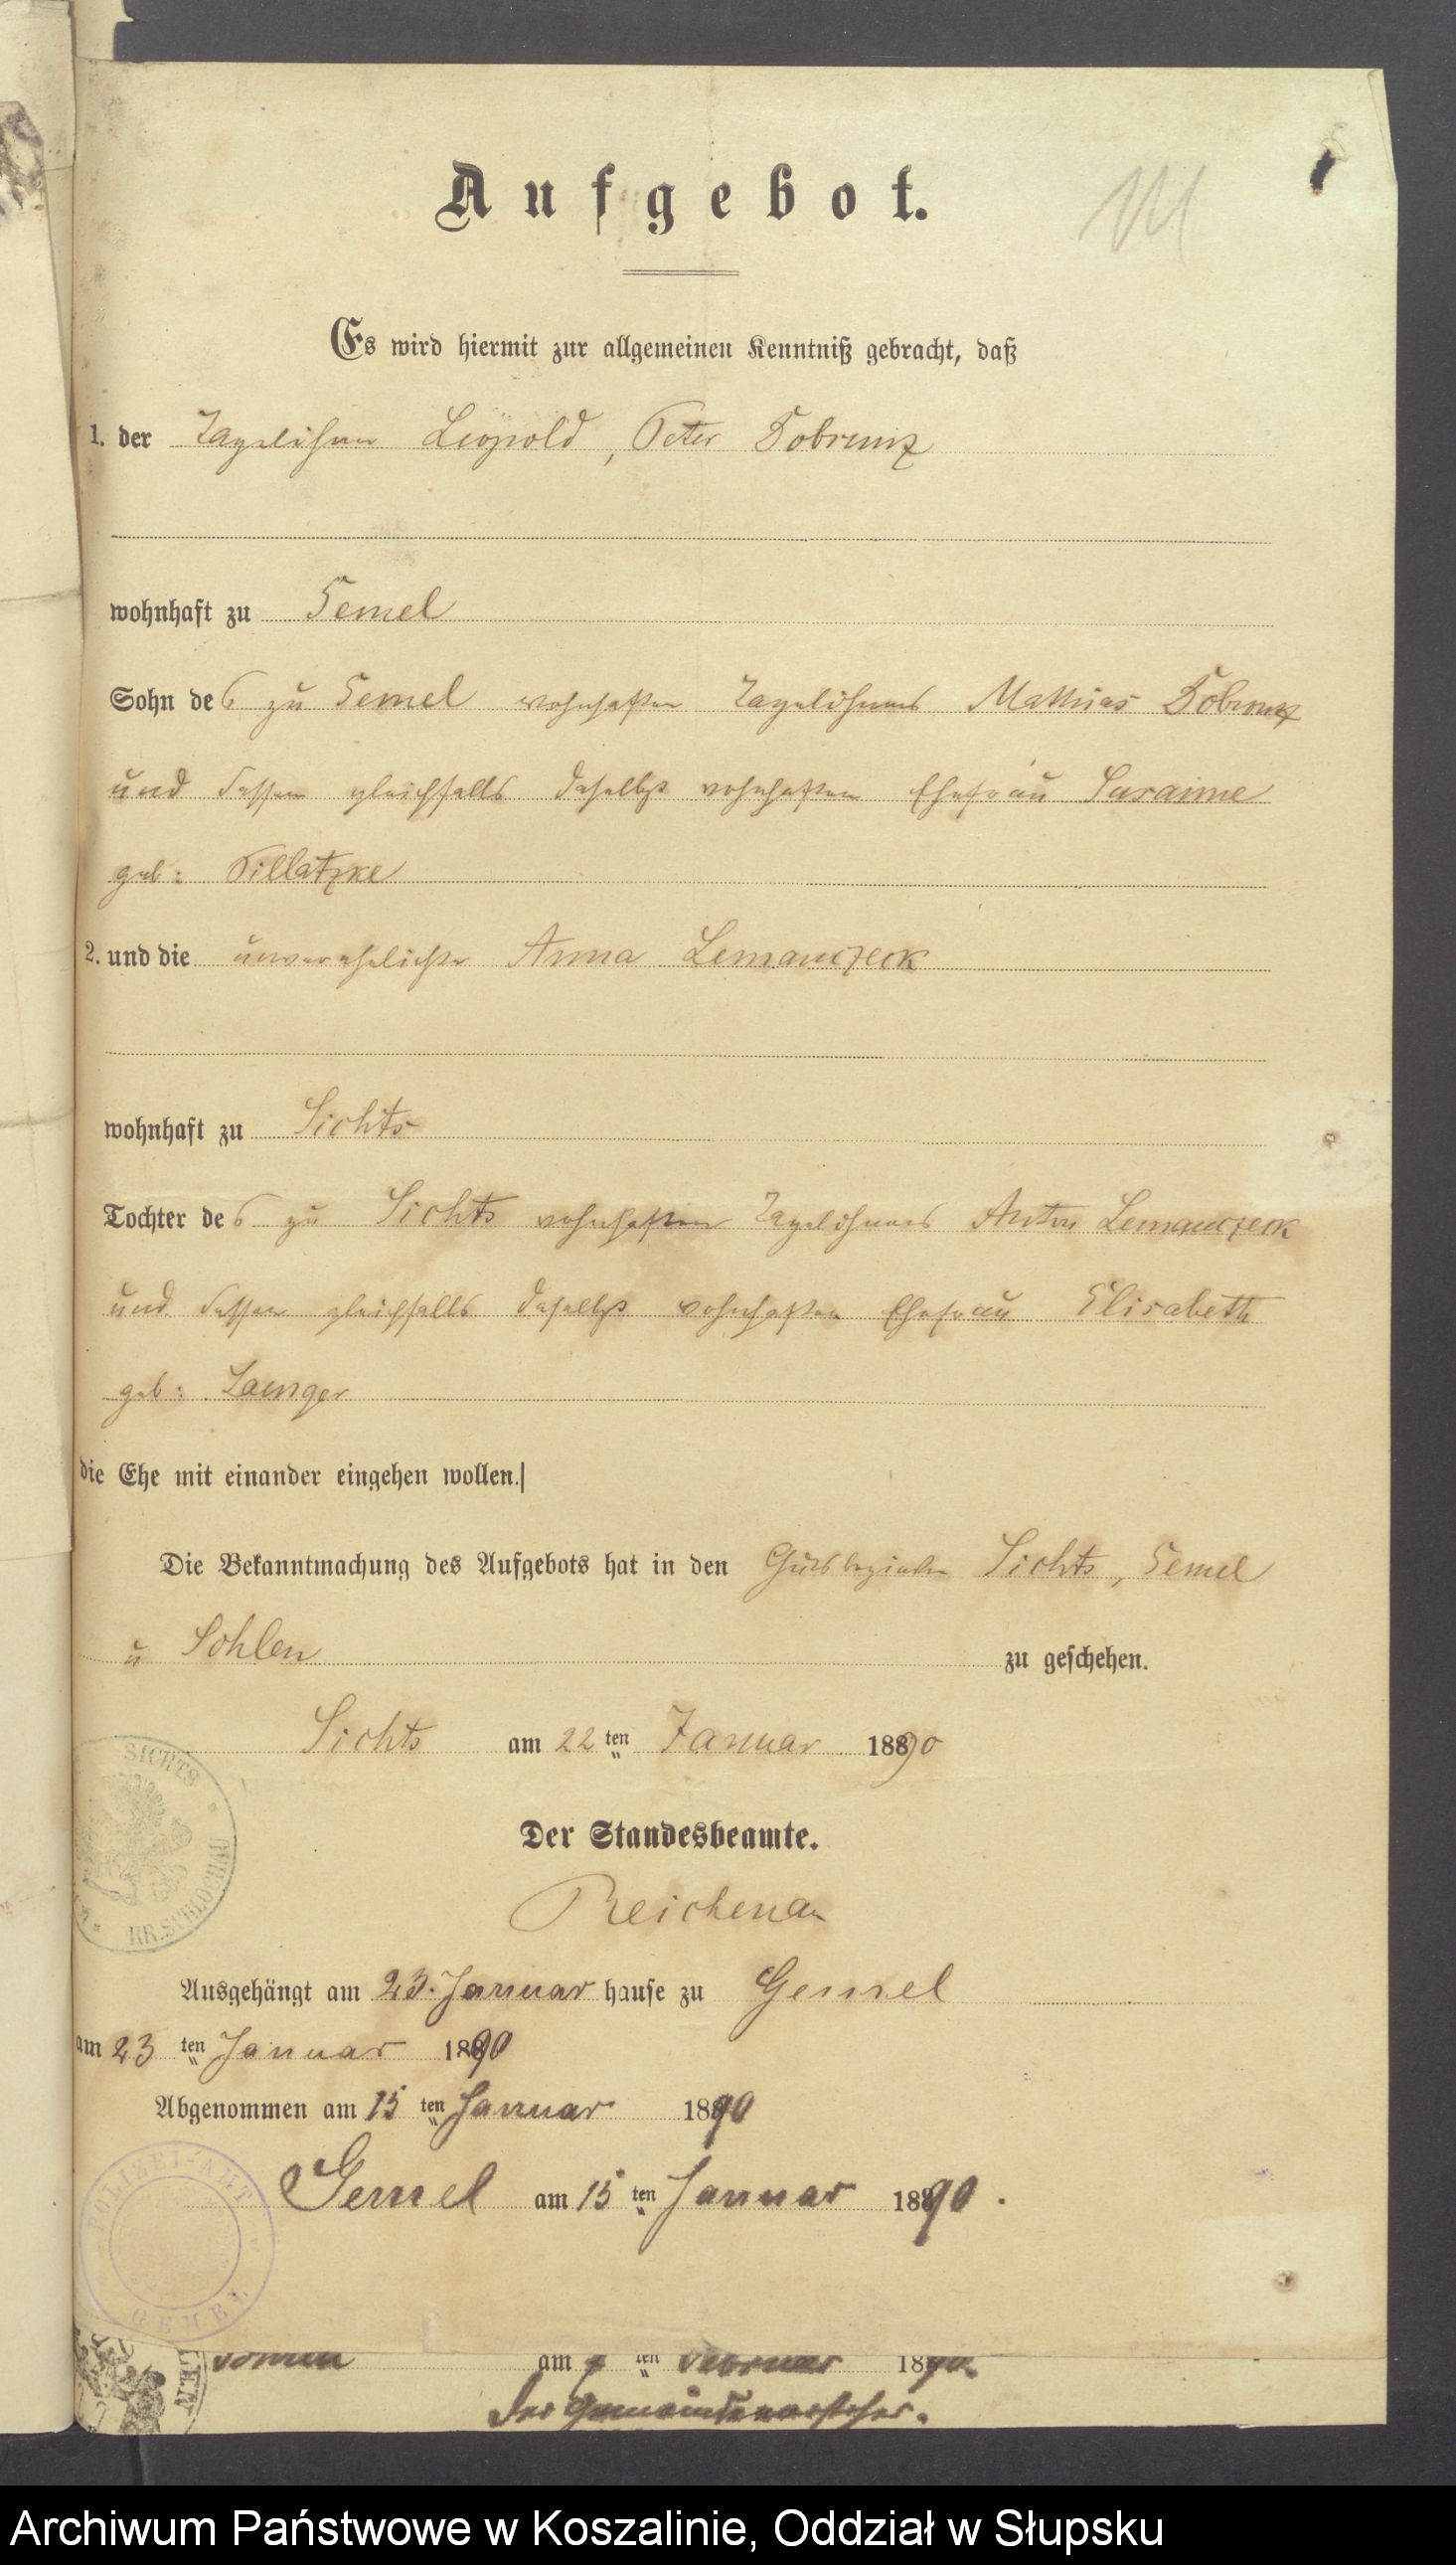 Aufgebot.
Es wird hiermit zur allgemeinen Kenntniß gebracht, daß
1. der Tagelöhner Leopold, Peter Dobrunz
wohnhaft zu Gemel
Sohn des zu Gemel wohnhaften Tagelöhners Mathias Dobrunz
und dessen gleichfalls daselbst wohnhaften Ehefrau Susanne
geb: Pillatzke
2. und die unverehelichte Anna Lemanczeck
wohnhaft zu Sichts
Tochter des zu Sichts wohnhaften Tagelöhners Anton Lemanczeck
und dessen gleichfalls daselbst wohnhaften Ehefrau Elisabeth
geb:
die Ehe mit einander eingehen wollen.
Die Bekanntmachung des Aufgebots hat in den Gutsbezirken Sichts, Gemel
u Pohlen zu geschehen.
Sichts am 22 ten Januar 1890
SICHTS
KR. SCHLOCHAU
Der Standesbeamte.
Reichenau
Ausgehängt am 23. Januar hause zu Gemel
am 23 ten Januar 1890
Abgenommen am 15 ten Januar 1890
POLIZEI-AMT
GEMEL
Gemel am 15 ten Januar 1890.
am 7 ten Februar 1890.
Der Gemeindevorsteher.
Archiwum Państwowe w Koszalinie, Oddział w Słupsku